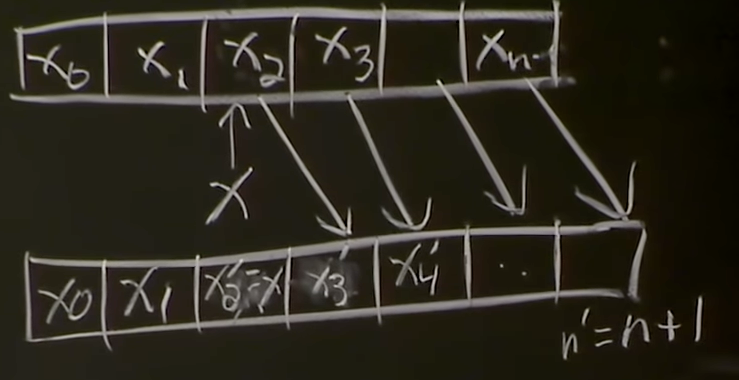 x₀ x₁ x₂ x₃ xₙ₋₁
x
x₀ x₁ x₂'=x x₃' x₄' ..
n'=n+1